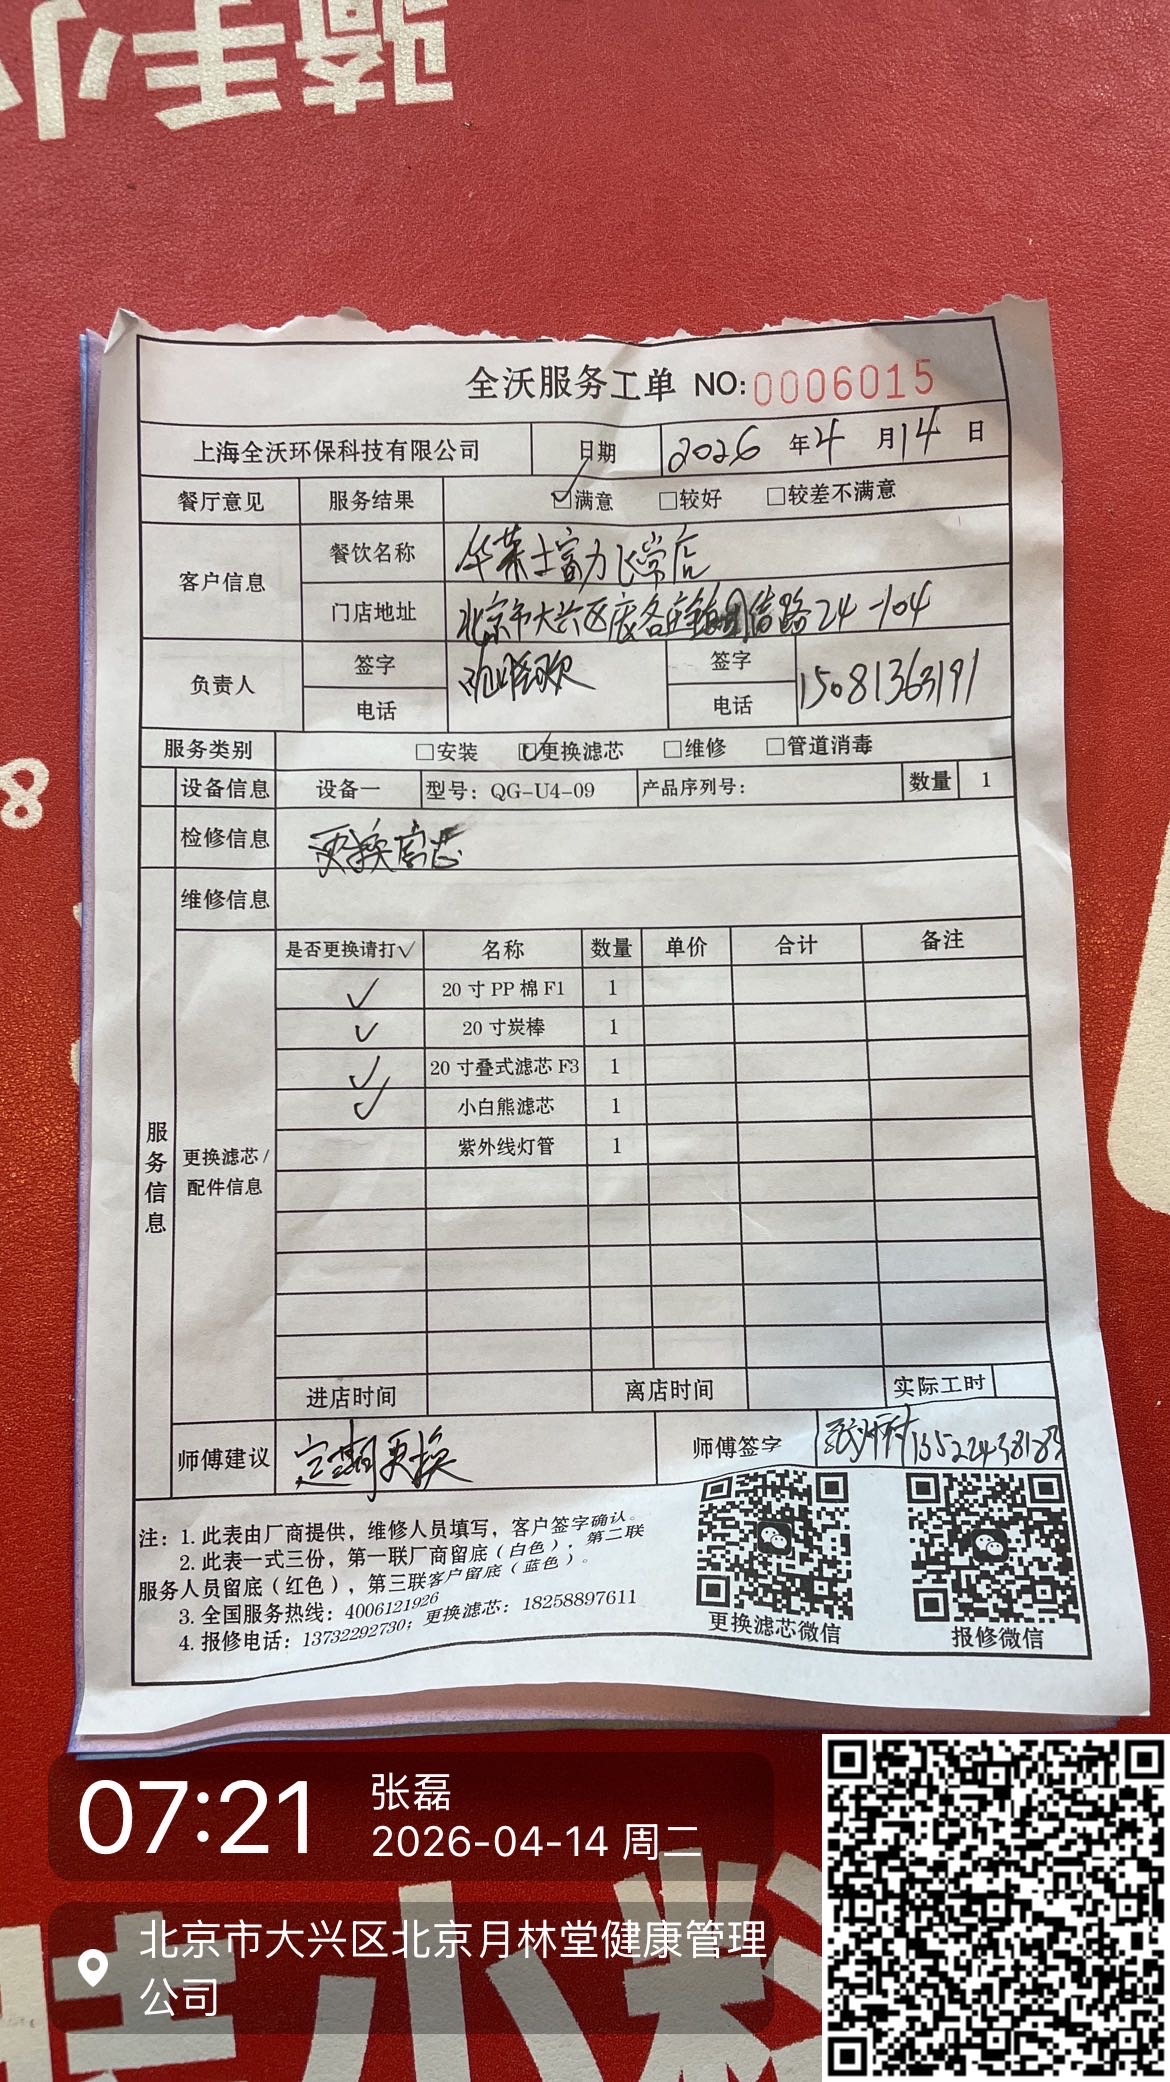 骑手小
全沃服务工单 NO:0006015
上海全沃环保科技有限公司 日期 2026 年 4 月 14 日
餐厅意见 服务结果 ☑满意 □较好 □较差不满意
客户信息 餐饮名称 华莱士富力
门店地址 北京市大兴区庞各庄镇 路24-104
负责人 签字 签字
电话 电话 15081363191
服务类别 □安装 ☑更换滤芯 □维修 □管道消毒
设备信息 设备一 型号：QG-U4-09 产品序列号： 数量 1
检修信息 更换 芯
维修信息
是否更换请打√ 名称 数量 单价 合计 备注
✓ 20寸PP棉F1 1
✓ 20寸炭棒 1
✓ 20寸叠式滤芯F3 1
✓ 小白熊滤芯 1
紫外线灯管 1
服务信息
更换滤芯/
配件信息
进店时间 离店时间 实际工时
师傅建议 定期更换 师傅签字 13522438183
注：1. 此表由厂商提供，维修人员填写，客户签字确认。
2. 此表一式三份，第一联厂商留底（白色），第二联
服务人员留底（红色），第三联客户留底（蓝色）。
3. 全国服务热线：4006121926
4. 报修电话：13732292730；更换滤芯：18258897611
更换滤芯微信 报修微信
07:21
张磊
2026-04-14 周二
北京市大兴区北京月林堂健康管理
公司